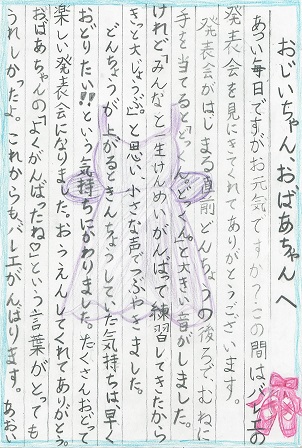 おじいちゃんおばあちゃんへ
あつい毎日ですがお元気ですか？この間はバレエの
発表会を見にきてくれてありがとうございます。
発表会がはじまる直前どんちょうの後ろで、むねに
手を当てると「どっくんどっくん」と大きい音がしました。
けれど「みんなと一生けんめいがんばって練習してきたから
きっと大じょうぶ。」と思い、小さな声でつぶやきました。
どんちょうが上がるときんちょうしていた気持ちは早く
おどりたい!!という気持ちにかわりました。たくさんおどって
楽しい発表会になりました。おうえんしてくれてありがとう。
おばあちゃんの「よくがんばったね♡」という言葉がとっても
うれしかったよ。これからも、バレエがんばります。あお